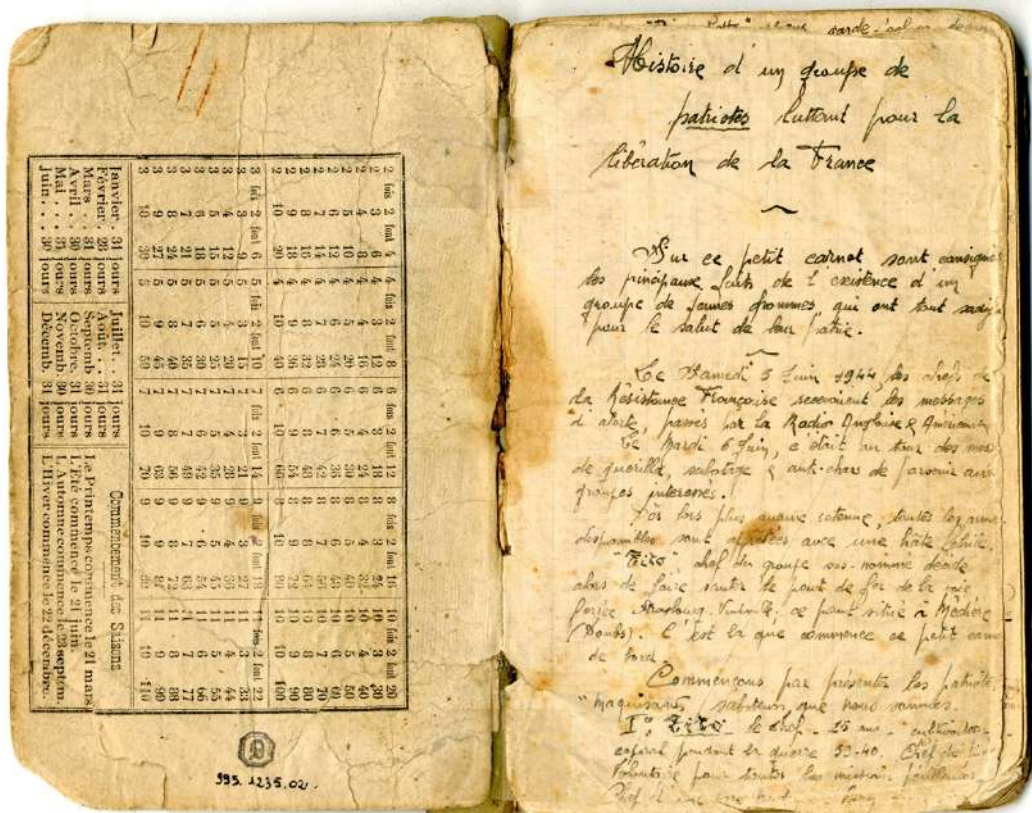 2 fois 2 font 4 4 fois 2 font 8 6 fois 2 font 12 8 fois 2 font 16 10 fois 2 font 20
2 3 6 4 3 12 6 3 18 8 3 24 10 3 30
2 4 8 4 4 16 6 4 24 8 4 32 10 4 40
2 5 10 4 5 20 6 5 30 8 5 40 10 5 50
2 6 12 4 6 24 6 6 36 8 6 48 10 6 60
2 7 14 4 7 28 6 7 42 8 7 56 10 7 70
2 8 16 4 8 32 6 8 48 8 8 64 10 8 80
2 9 18 4 9 36 6 9 54 8 9 72 10 9 90
2 10 20 4 10 40 6 10 60 8 10 80 10 10 100
3 fois 2 font 6 5 fois 2 font 10 7 fois 2 font 14 9 fois 2 font 18 11 fois 2 font 22
3 3 9 5 3 15 7 3 21 9 3 27 11 3 33
3 4 12 5 4 20 7 4 28 9 4 36 11 4 44
3 5 15 5 5 25 7 5 35 9 5 45 11 5 55
3 6 18 5 6 30 7 6 42 9 6 54 11 6 66
3 7 21 5 7 35 7 7 49 9 7 63 11 7 77
3 8 24 5 8 40 7 8 56 9 8 72 11 8 88
3 9 27 5 9 45 7 9 63 9 9 81 11 9 99
3 10 30 5 10 50 7 10 70 9 10 90 11 10 110
Commencement des Saisons
Janvier . 31 jours Juillet . . 31 jours Le Printemps commence le 21 mars
Février . 28 jours Août . . . 31 jours L'Été commence le 21 juin.
Mars . . 31 jours Septemb 30 jours L'Automne commence le 23 septem.
Avril . . 30 jours Octobre. 31 jours L'Hiver commence le 22 décembre.
Mai . . . 31 jours Novemb 30 jours
Juin . . . 30 jours Décemb. 31 jours
995.1235.02.
garde
Histoire d'un groupe de
patriotes luttant pour la
libération de la France
Sur ce petit carnet sont consignés
les principaux faits de l'existence d'un
groupe de jeunes hommes qui ont tout
pour le salut de leur Patrie.
Le Samedi 3 Juin 1944, les chefs de
la Résistance Française recevaient les messages
d'alerte, passés par la Radio Anglaise &
Le Mardi 6 Juin, c'était au tour des
de guérilla, sabotage & anti-chars de parvenir aux
groupes interessés.
Dès lors plus aucune retenue, toutes les armes
disponibles sont avec une hâte fébrile.
"Tito", chef du groupe sus-nommé décide
alors de faire sauter le pont de fer de la voie
ferrée Strasbourg. ce pont situé à Médière
(Doubs). C'est là que commence ce petit
de bord.
Commençons par presenter les patriotes
"maquisards" saboteurs, que nous sommes.
1°. Tito le chef - 25 ans -
caporal pendant la guerre 39-40. Chef de
Volontaire pour toutes les missions périlleuses
Chef